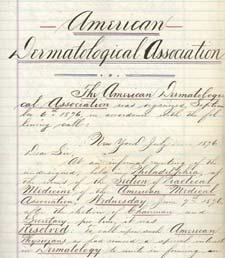 American
Dermatological Association
The American Dermatologi-
cal Association was organized Septem-
ber 6th 1876, in accordance with the fol-
lowing call:
New York July 1876
Dear Sir
At an informal meeting of the
undersigned, held in Philadelphia, at
the rooms of the Section of Practical
Medicine of the American Medical
Association, Wednesday June 7th 1876,
after the election of Chairman and
Secretary pro tem, it was
Resolved To call upon such American
Physicians as had evinced a special interest
in Dermatology to unite in forming an